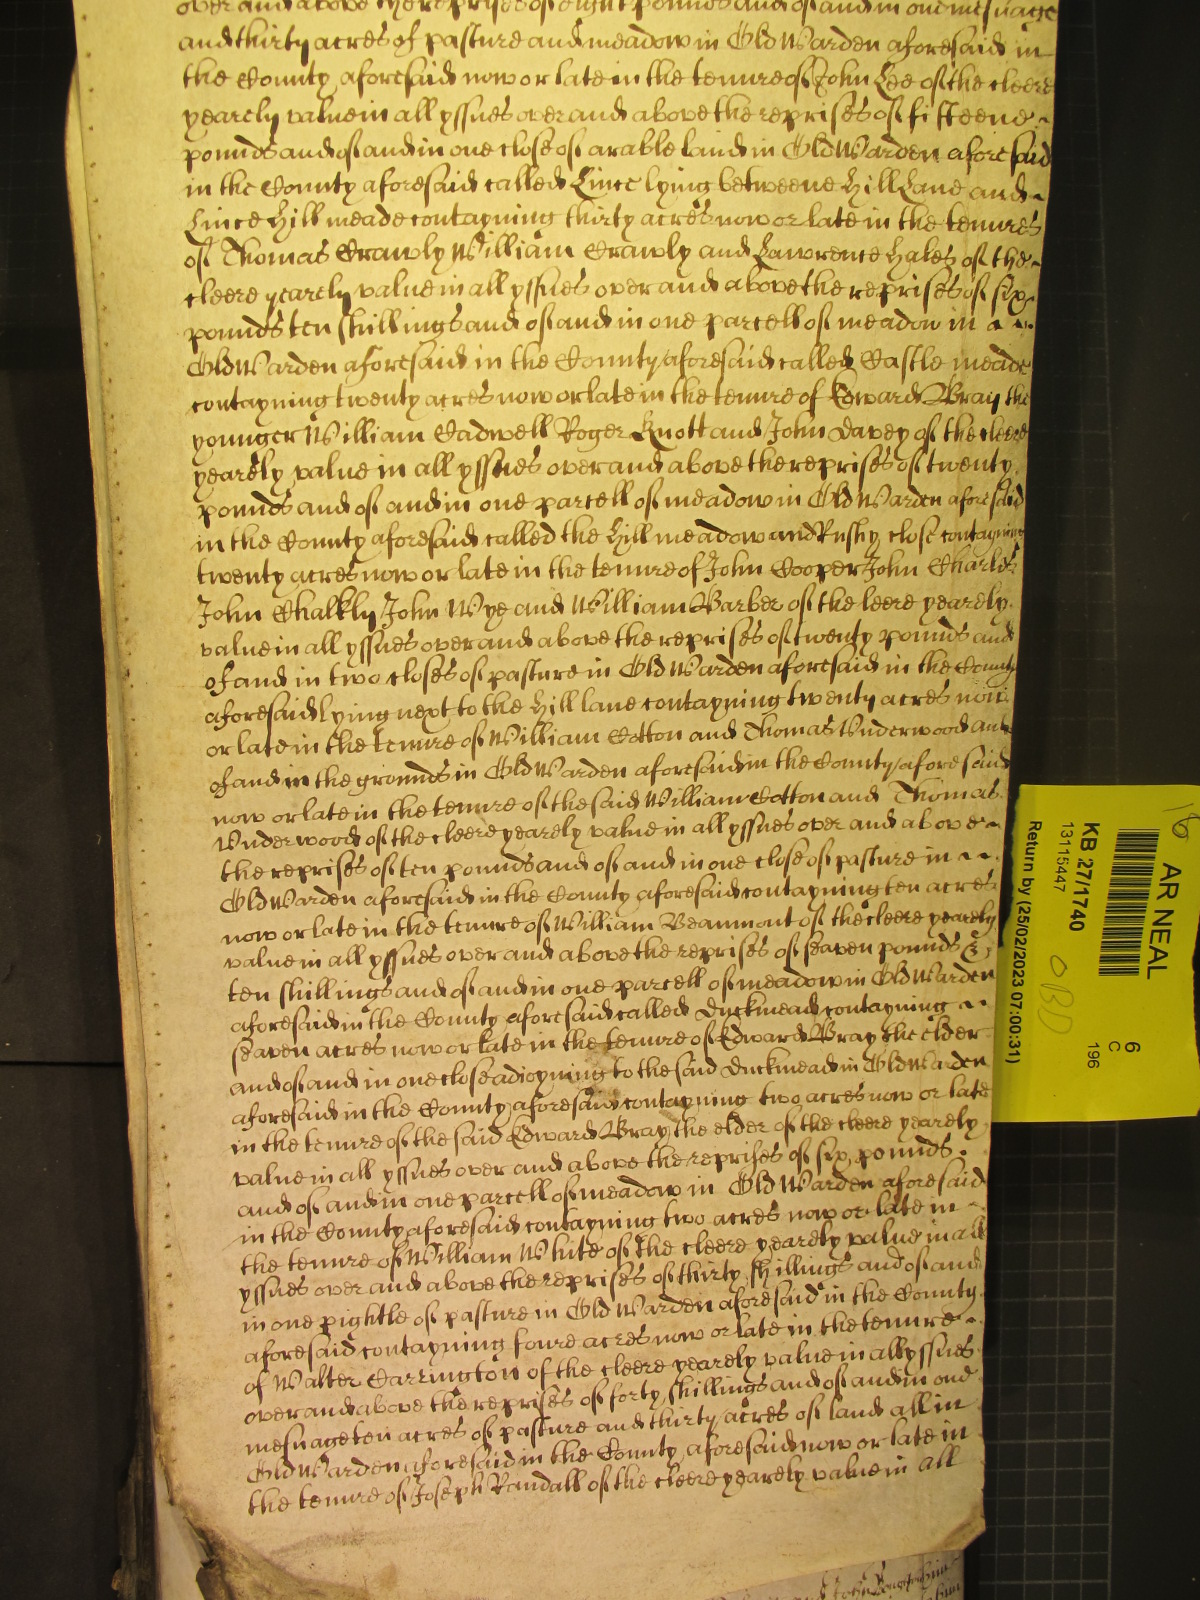 over and above the reprises of eight pounds and of and in one mesuage
and thirty acres of pasture and meadow in Old Warden aforesaid in
the County aforesaid now or late in the tenure of John Lee of the cleere
yearely value in all yssues over and above the reprises of fifteene
pounds and of and in one close of arable land in Old Warden aforesaid
in the County aforesaid called Lince lying betweene Hill Lane and
Lince Hill meade contayning thirty acres now or late in the tenures
of Thomas Crawly William Crawly and Lawrence Hales of the
cleere yearely value in all yssues over and above the reprises of six
pounds ten shillings and of and in one parcell of meadow in
Old Warden aforesaid in the County aforesaid called Castle meade
contayning twenty acres now or late in the tenure of Edward Bray the
younger William Cadwell Roger Knott and John Davey of the cleere
yearely value in all yssues over and above the reprises of twenty
pounds and of and in one parcell of meadow in Old Warden aforesaid
in the County aforesaid called the Hill meadow and Rushy close contayning
twenty acres now or late in the tenure of John Cooper John Charles
John Chalkly John Wye and William Barber of the leere yearely
value in all yssues over and above the reprises of twenty pounds and
of and in two closes of pasture in Old Warden aforesaid in the County
aforesaid lying next to the Hill lane contayning twenty acres now
or late in the tenure of William Cotton and Thomas Underwood and
of and in the grounds in Old Warden aforesaid in the County aforesaid
now or late in the tenure of the said William Cotton and Thomas
Underwood of the cleere yearely value in all yssues over and above
the reprises of ten pounds and of and in one close of pasture in
Old Warden aforesaid in the County aforesaid contayning ten acres
now or late in the tenure of William Beaumont of the cleere yearely
value in all yssues over and above the reprises of seaven pounds &
ten shillings and of and in one parcell of meadow in Old Warden
aforesaid in the County aforesaid called Duckmead contayning
seaven acres now or late in the tenure of Edward Bray the elder
and of and in one close adioyning to the said Duckmead in Old Warden
aforesaid in the County aforesaid contayning two acres now or late
in the tenure of the said Edward Bray the elder of the cleere yearely
value in all yssues over and above the reprises of six pounds.
and of and in one parcell of meadow in Old Warden aforesaid
in the County aforesaid contayning two acres now or late in
the tenure of William White of the cleere yearely value in all
yssues over and above the reprises of thirty shillings and of and
in one pightle of pasture in Old Warden aforesaid in the County
aforesaid contayning foure acres now or late in the tenure
of Walter Carrington of the cleere yearely value in all yssues
over and above the reprises of forty shillings and of and in one
mesuage ten acres of pasture and thirty acres of land all in
Old Warden aforesaid in the County aforesaid now or late in
the tenure of Joseph Randall of the cleere yearely value in all
AR NEAL
KB 27/1740
13115447
Return by (25/02/2023 07:00:31)
6
C
196